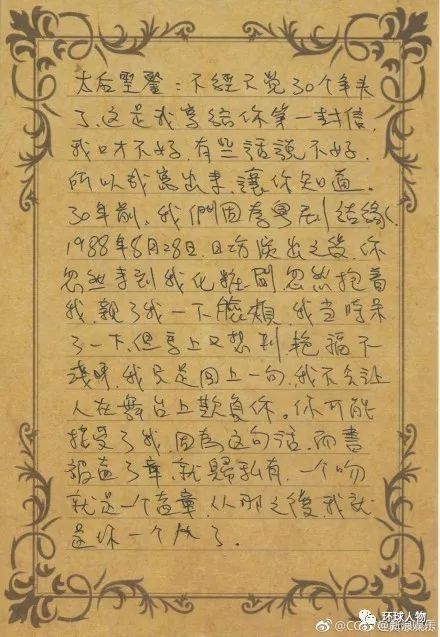 太后聖鑒：不經不覺30个年头
了,这是我寫給你第一封信,
我口才不好,有些話說不好,
所以我寫出来,讓你知道。
30年前,我們因粤剧結緣,
1988年8月28日,日場演出之後,你
忽然来到我化粧間忽然抱着
我,親了我一下臉頰,我当時呆
了一下,但馬上又想到艳福不
淺啊,我只是回上一句,我不会让
人在舞台上欺負你。你可能
接受了我,因為这句话,而書
報盖了章,就歸私有,一个吻
就是一个盖章,从那之後,我就
是你一个人了。
环球人物
@新浪娱乐